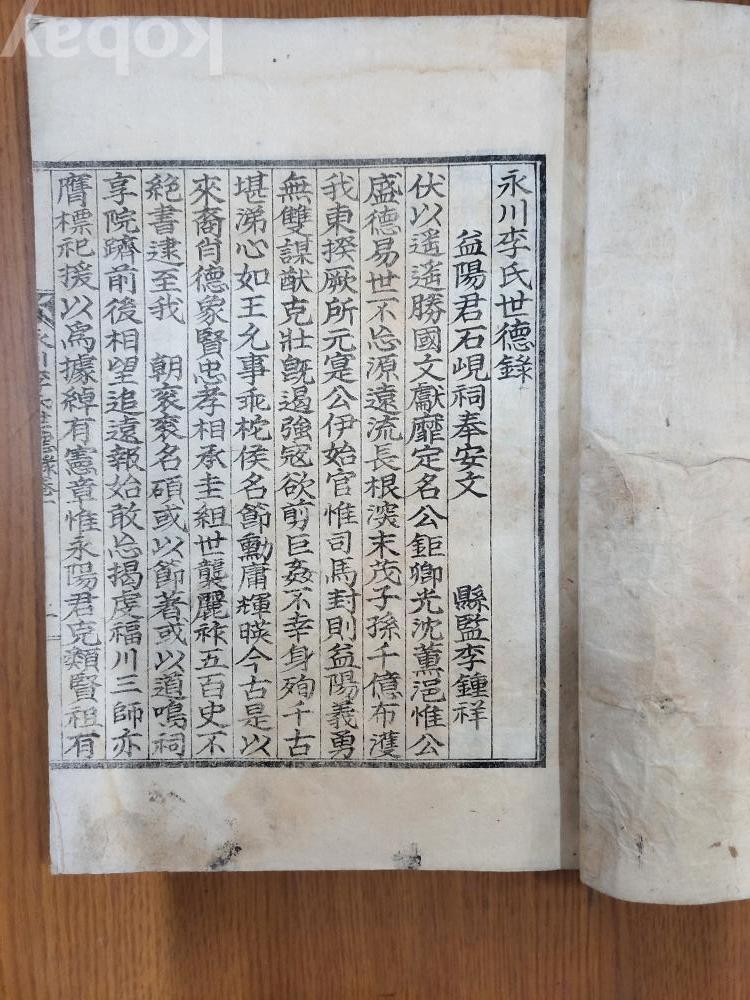 永川李氏世德錄
益陽君石峴祠奉安文 縣監李鍾祥
伏以遥遥勝國文獻靡定名公鉅卿光沈薰浥惟公
盛德易世不忘源遠流長根深末茂子孫千億布濩
我東揆厥所元寔公伊始官惟司馬封則益陽義勇
無雙謀猷克壯旣遏強寇欲剪巨姦不幸身殉千古
堪涕心如王允事乖枕侯名節勳庸輝暎今古是以
來裔肖德象賢忠孝相承圭組世襲麗祚五百史不
絶書逮至我 朝袞袞名碩或以節著或以道鳴祠
享院躋前後相望追遠報始敢忘揭虔福川三師亦
膺標祀援以爲據綽有憲章惟永陽君克類賢祖有
永川李氏世德錄卷一
kobay